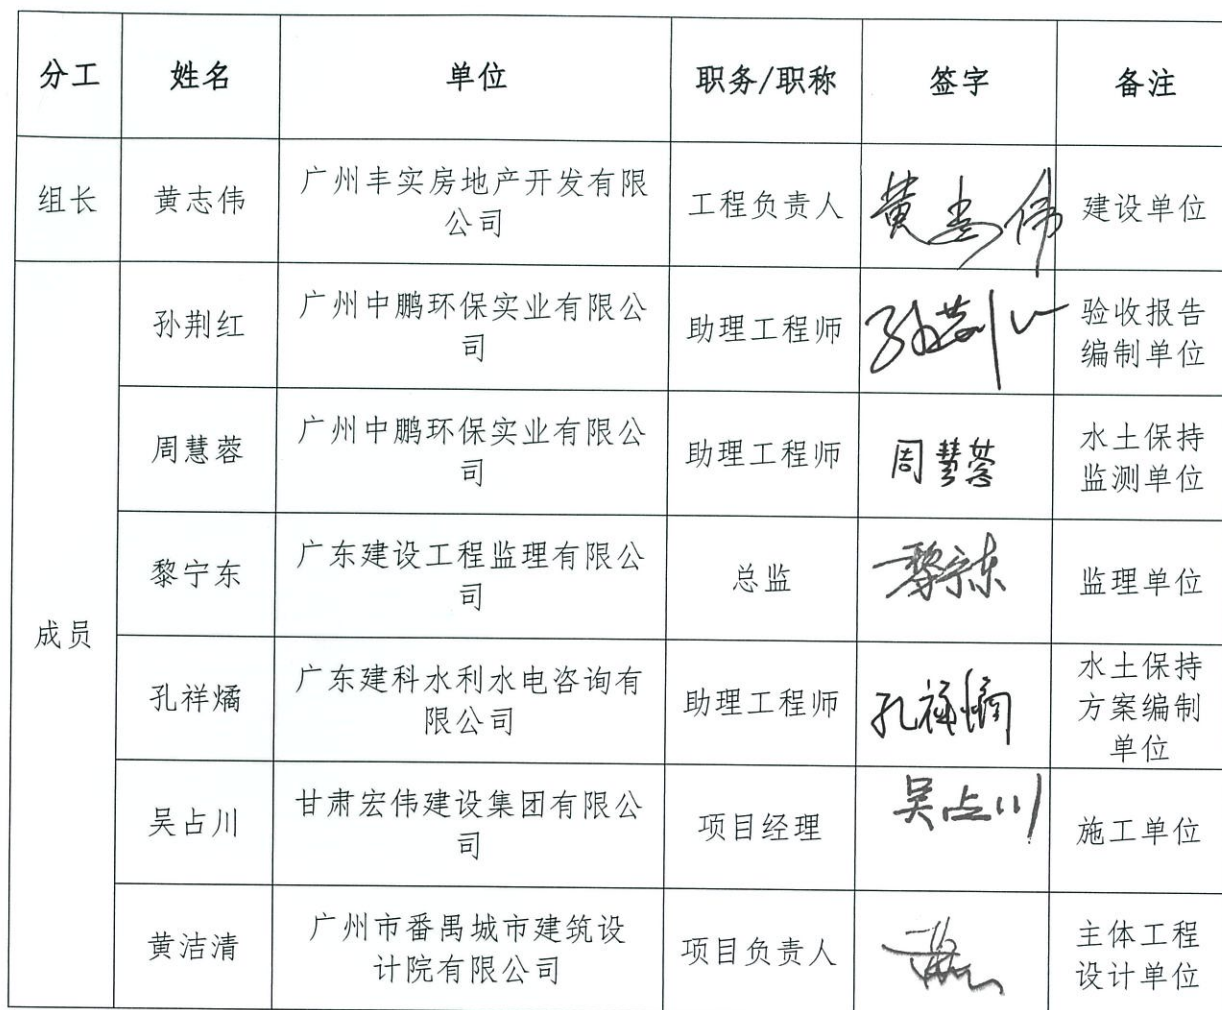 分工 姓名 单位 职务/职称 签字 备注
组长 黄志伟 广州丰实房地产开发有限 工程负责人 黄志伟 建设单位
公司
孙荆红 广州中鹏环保实业有限公 助理工程师 孙荆红 验收报告
司 编制单位
周慧蓉 广州中鹏环保实业有限公 助理工程师 周慧蓉 水土保持
司 监测单位
黎宁东 广东建设工程监理有限公 总监 黎宁东 监理单位
司
成员
孔祥燏 广东建科水利水电咨询有 助理工程师 孔祥燏 水土保持
限公司 方案编制
单位
吴占川 甘肃宏伟建设集团有限公 项目经理 吴占川 施工单位
司
黄洁清 广州市番禺城市建筑设 项目负责人 主体工程
计院有限公司 设计单位